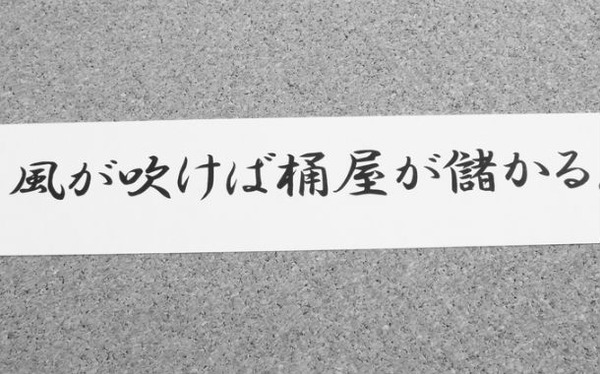 風が吹けば桶屋が儲かる。